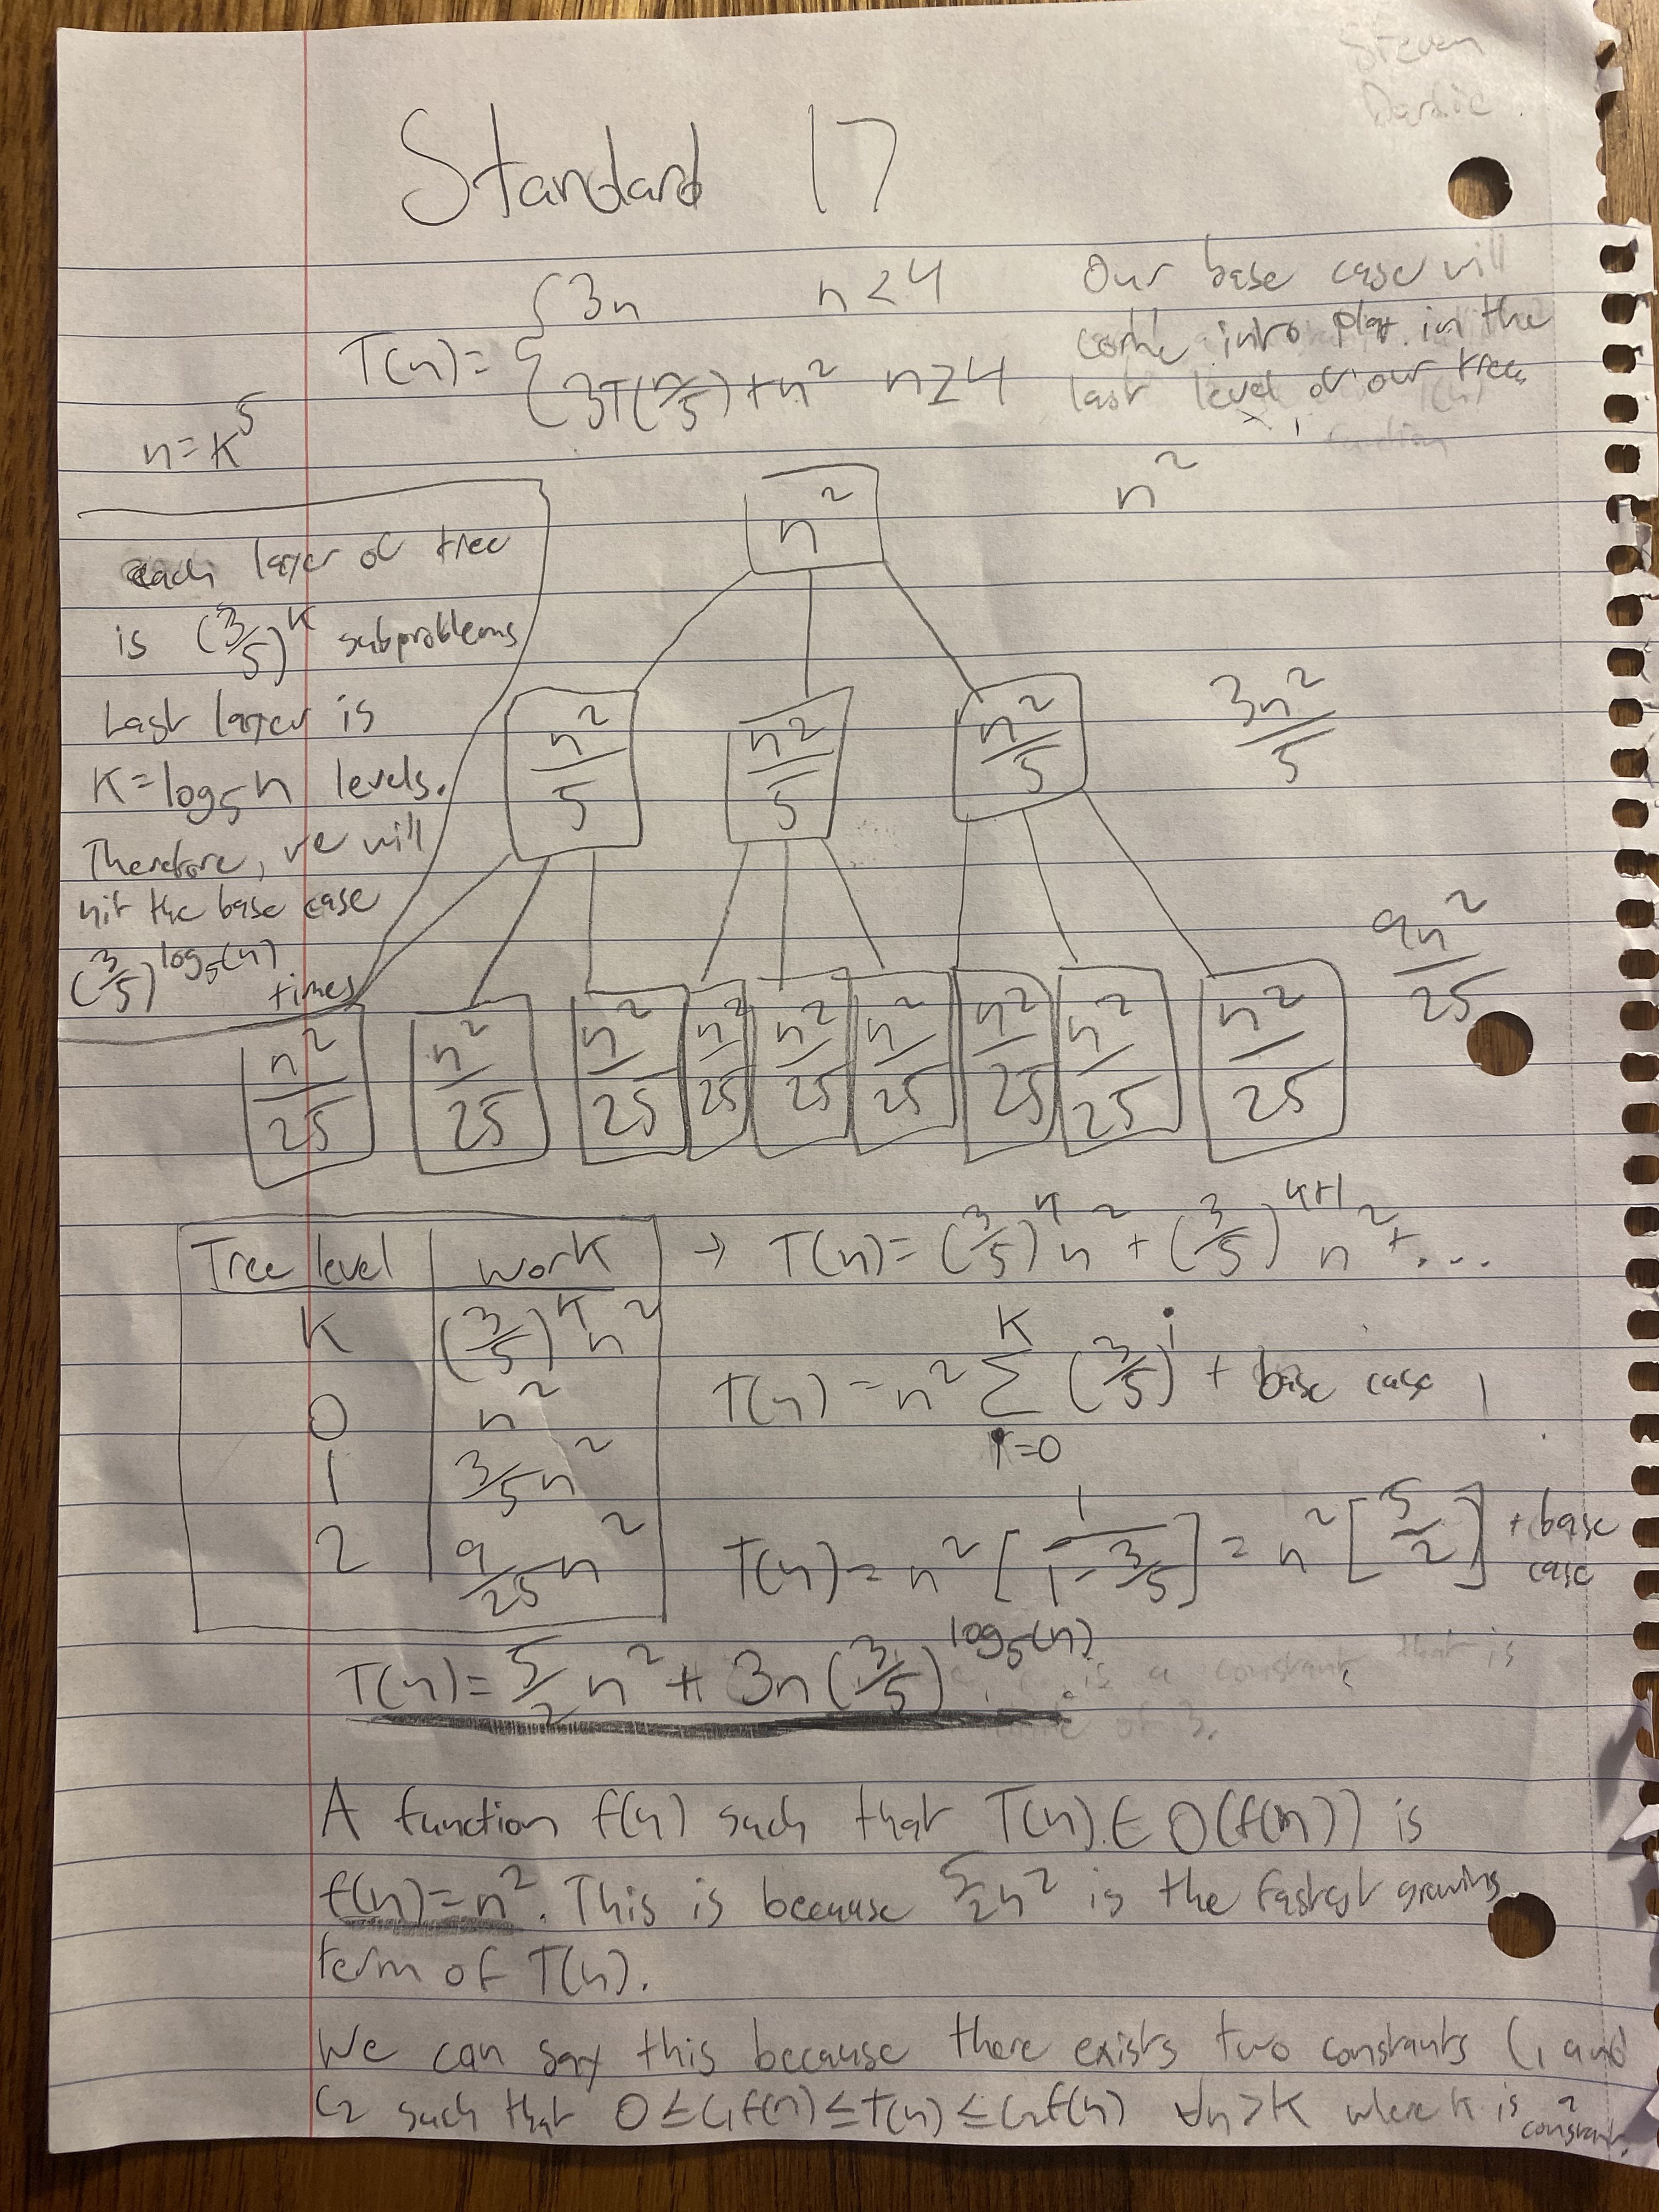 Steven
Standard 17
T(n)= { 3n n<4
3T(n/5)+n² n≥4
Our base case will
come into play in the
last level of our tree.
n=K⁵
each layer of tree
is (3/5)^K subproblems
Last layer is
K=log₅n levels.
Therefore, we will
hit the base case
(3/5)^log₅(n) times
n²
n²
n²/5 n²/5 n²/5 3n²/5
n²/25 n²/25 n²/25 n²/25 n²/25 n²/25 n²/25 n²/25 n²/25 9n²/25
Tree level | work
K | (3/5)^K n²
0 | n²
1 | 3/5 n²
2 | 9/25 n²
→ T(n)=(3/5)^K n² + (3/5)^K+1 n² + ...
T(n) = n² Σ_{i=0}^{K} (3/5)^i + base case
T(n) = n² [1/(1-3/5)] = n² [5/2] + base case
T(n)= 5/2 n² + 3n(3/5)^log₅(n)
is a constant that is
of 3.
A function f(n) such that T(n) ∈ O(f(n)) is
f(n)=n². This is because 5/2n² is the fastest growing
term of T(n).
We can say this because there exists two constants C₁ and
C₂ such that 0≤C₁f(n)≤T(n)≤C₂f(n) ∀n>K where K is a constant.